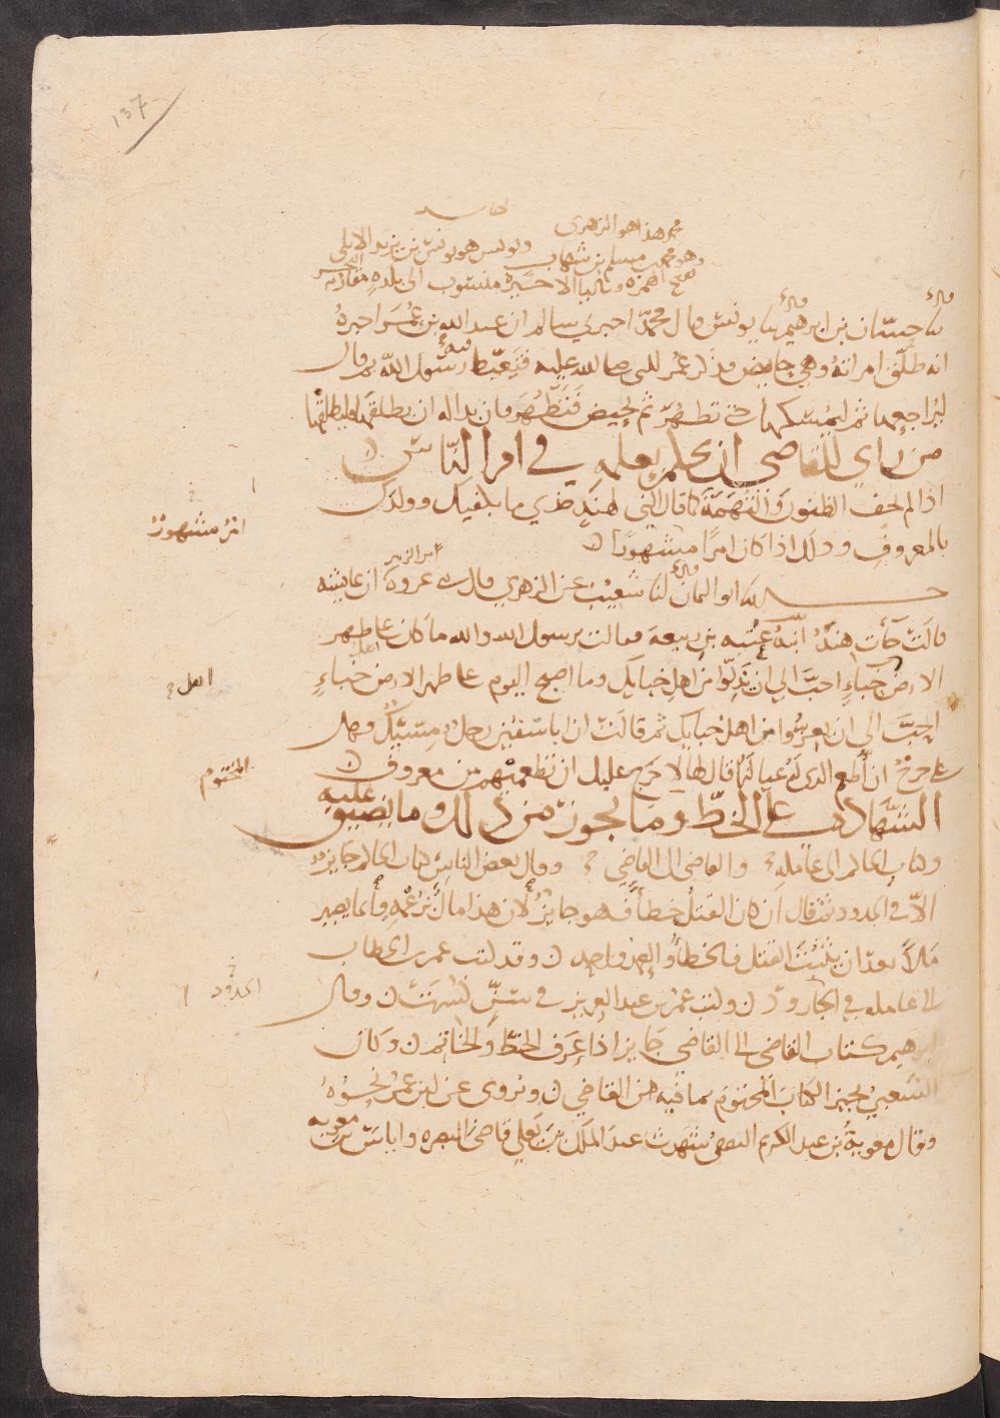 137
حاشيه
محمد هذا هو الزهري
وهو محمد بن مسلم بن شهاب ويونس هو يونس بن يزيد الايلي
بفتح الهمزه وبالياء الاخيرة منسوب الى بلده
قال قال
نا حسان بن ابرهيم نا يونس قال محمد اخبرني سالم ان عبد الله بن عمر اخبره
انه طلق امراته وهي حايض فذكر عمر للنبي صلى الله عليه فتغيظ فيه رسول الله ثم قال
ليراجعها ثم ليمسكها حتى تطهر ثم تحيض فتطهر فان بدا له ان يطلقها فليطلقها
من راى للقاضي ان يحكم بعلمه في امر الناس
اذا لم يخف الظنون والتهمة كما قال النبي لهند خذي ما يكفيك وولدك
امر مشهور
بالمعروف وذلك اذا كان امرا مشهورا
حدثنا ابو اليمان قال انا شعيب عن الزهري قال ني عروة ان عايشه
ابن الزبير
قالت جآت هند ابنة عتبه بن ربيعه فقالت يرسول الله والله ما كان على ظهر
الارض خباء احب الي ان يذلوا من اهل خبايك وما اصبح اليوم على ظهر الارض خباء
اهل
احب الي ان يعزوا من اهل خبايك ثم قالت ان ابا سفين رجل مسيك فهل
علي حرج ان اطعم الذي له عيالنا قال لها لا حرج عليك ان تطعميهم من معروف
المختوم
الشهادة على الخط وما يجوز من ذلك وما يضيق عليه
وكتاب الحاكم الى عامله والقاضي الى القاضي وقال بعض الناس كتاب الحاكم جايز
الا في الحدود ثم قال ان كان القتل خطأ فهو جايز لان هذا مال بزعمه وانما يصير
مالا بعد ان يثبت القتل فالخطأ والعمد واحد وقد كتب عمر بن الخطاب
الحدود
الى عامله في الجارود وكتب عمر بن عبد العزيز في سن كسرت وقال
ابرهيم كتاب القاضي الى القاضي جايز اذا عرف الخط والخاتم وكان
الشعبي يجيز الكتاب المختوم بما فيه من القاضي ويروى عن ابن عمر نحوه
وقال معوية بن عبد الكريم الثقفي شهدت عبد الملك بن يعلى قاضي البصره واياس بن معويه